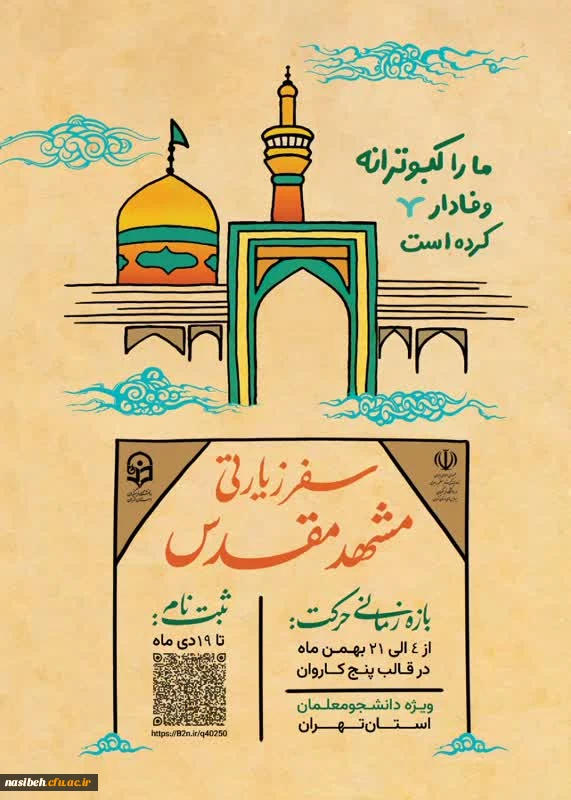 ما را کبوترانه
وفادار
کرده است
سفر زیارتی
مشهد مقدس
بازه زمانی حرکت:
از ٤ الی ۲۱ بهمن ماه
در قالب پنج کاروان
ویژه دانشجومعلمان
استان تهران
ثبت نام:
تا ۱۹ دی ماه
https://B2n.ir/q40250
nasibeh.cfu.ac.ir